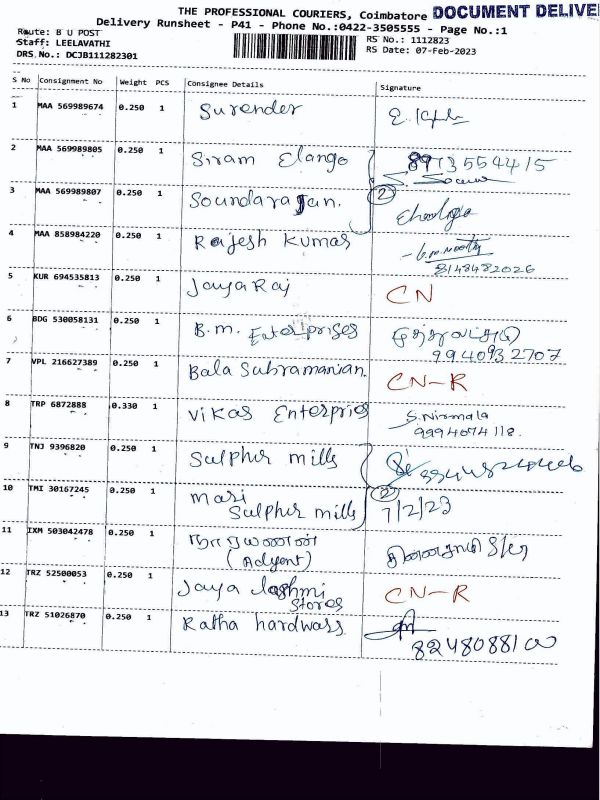 THE PROFESSIONAL COURIERS, Coimbatore DOCUMENT DELIVE
Delivery Runsheet - P41 - Phone No.:0422-3505555 - Page No.:1
Route: B U POST
Staff: LEELAVATHI
DRS No.: DCJB111282301
RS No.: 1112823
RS Date: 07-Feb-2023
S No Consignment No Weight PCS Consignee Details Signature
1 MAA 569989674 0.250 1 Surender
2 MAA 569989805 0.250 1 Sriram Elango 8973554415
3 MAA 569989807 0.250 1 Soundararajan. 2
4 MAA 858984220 0.250 1 Rajesh Kumar
8148482026
5 KUR 694535813 0.250 1 Jaya Raj CN
6 BDG 530058131 0.250 1 B.m. Enterprises
9940932707
7 VPL 216627389 0.250 1 Bala Subramanian. CN-R
8 TRP 6872888 0.330 1 Vikas Enterpries S.Nirmala
9994074118.
9 TNJ 9396820 0.250 1 Sulphur mills
10 TMI 30167245 0.250 1 mari 2
Sulphur mills 7/2/23
11 IXM 503042478 0.250 1 நாராயணன்
12 TRZ 52500053 0.250 1 Jaya lashmi CN-R
Stores
13 TRZ 51026870 0.250 1 Ratha hardwass
8248088100